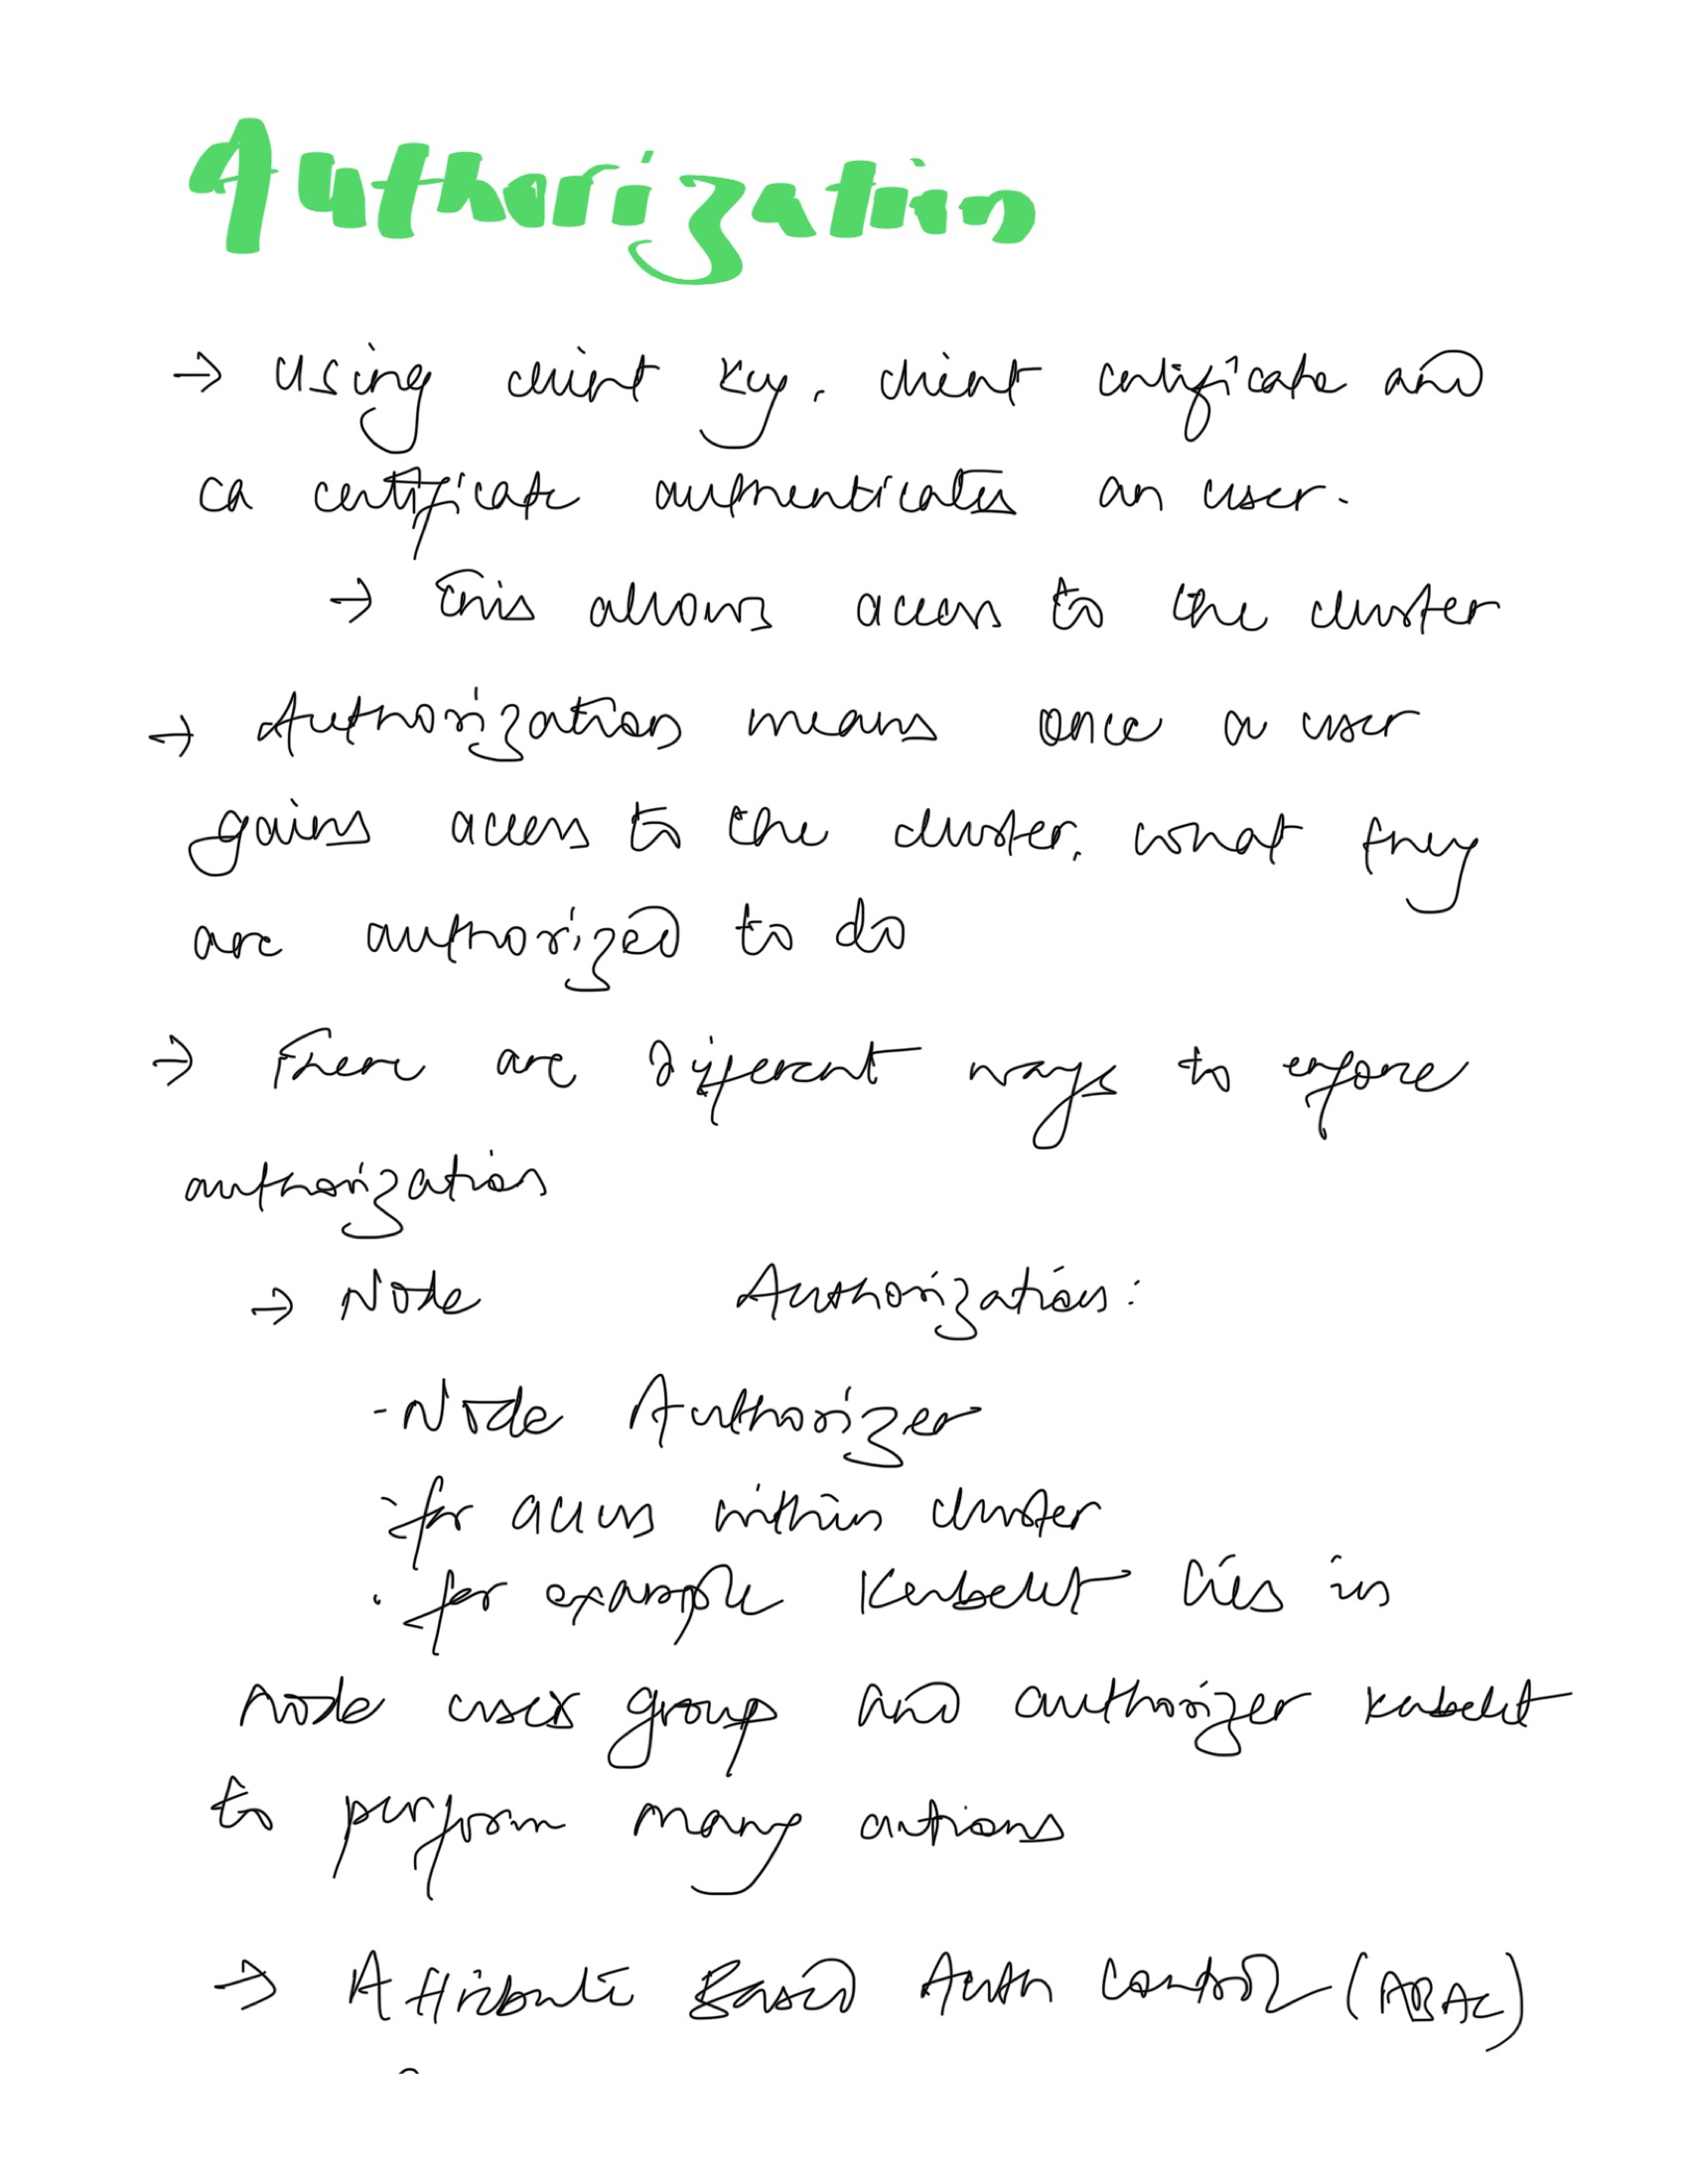 Authorization
→ Using client key, client certificate and
ca certificate authenticates an user.
→ This allows access to the cluster
→ Authorization means once a user
gains access to the cluster, what they
are authorized to do
→ There are different ways to enforce
authorization
→ Node Authorization:
- Node Authorizer
- for access within cluster
. for example Kubelet lies in
node users group and authorizer kubelet
to perform many actions
→ Attribute Based Auth Control (ABAC)